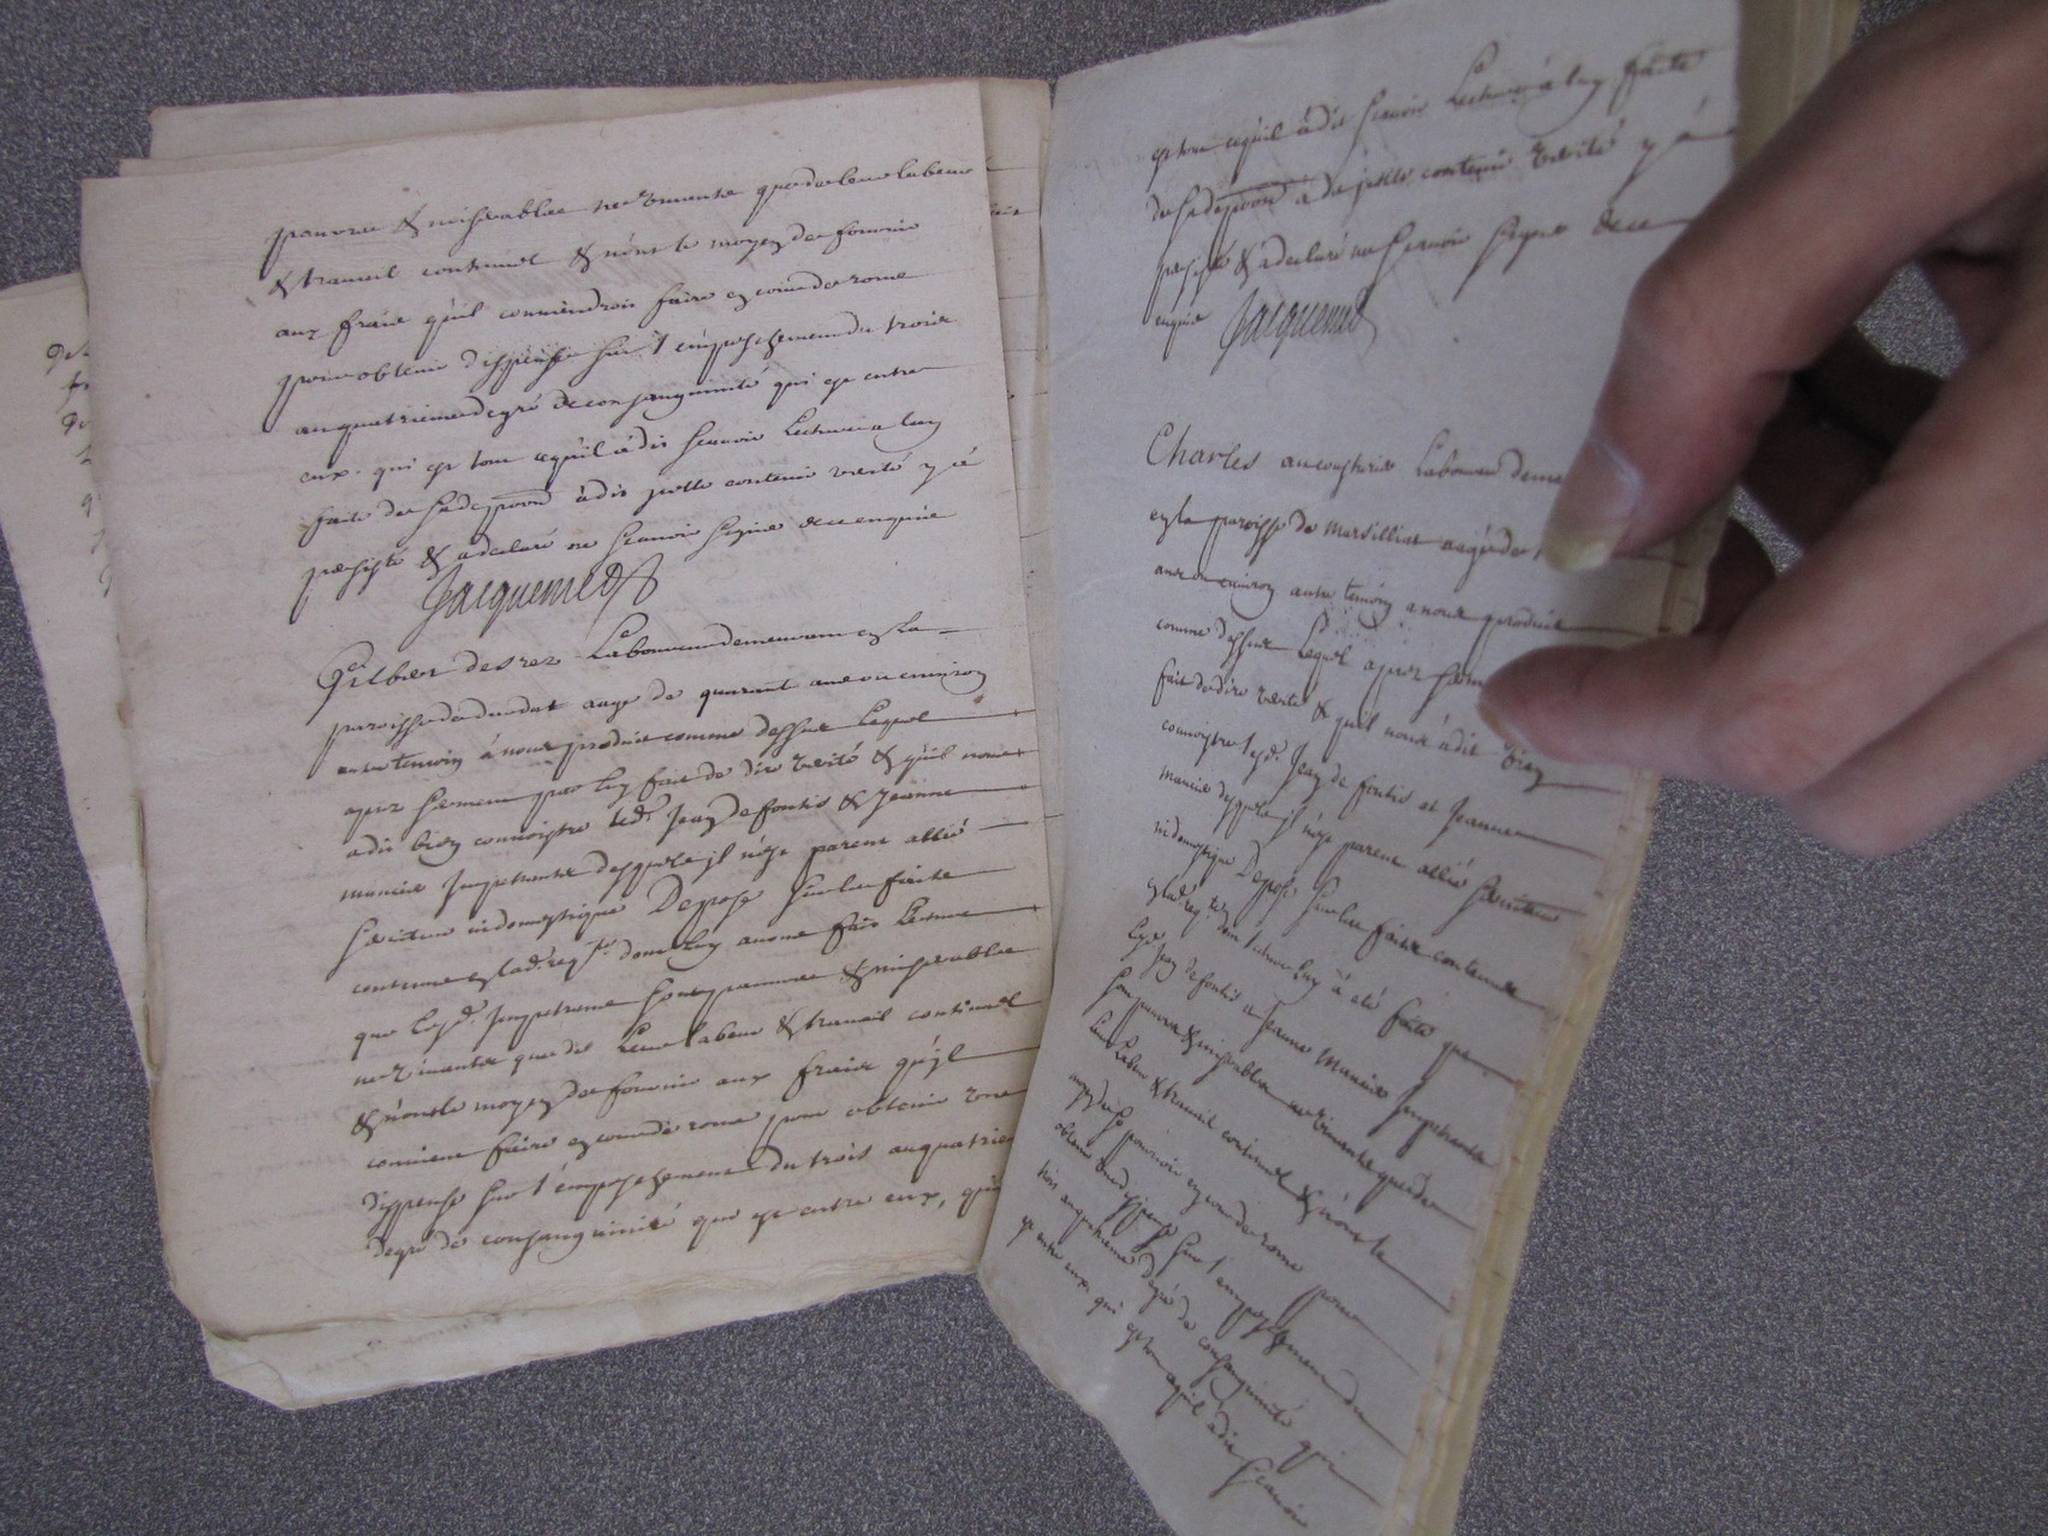 pauvres & miserables ne vivants que de leur labeur
& travail continuel & n'ont le moyen de fournir
aux fraix qu'il conviendroit faire en cour de rome
pour obtenir dispense sur l'empeschement du trois
au quatrieme degré de consanguinité qui est entre
eux. qui est tout ce qu'il à dit scavoir Lecture a luy
faite de sa depposon à dit icelle contenir verité y à
persisté & a declaré ne scavoir signer de ce enquis
Jacquemet
Gilbert desrez Laboureur demeurant en la
paroisse de dundat aagé de quarante ans ou environ
autre temoin à nous produit comme dessus Lequel
apres serment par luy fait de dire verité & qu'il nous
a dit bien connoistre lesd. Jean de fontis & Jeanne
mancier Impetrants desquels il n'est parent allié
serviteur ni domestique Depose sur les faits
contenus en lad. reqte dont luy avons fait Lecture
que lesd. Impetrants sont pauvres & miserables
ne vivants que de Leur labeur & travail continuel
& n'ont le moyen de fournir aux fraix qu'il
convient faire en cour de rome pour obtenir une
dispense sur l'empeschement du trois au quatrie
degré de consanguinité qui est entre eux, qui
est tout ce qu'il à dit scavoir Lecture à luy faite
de sa depposon a dit icelle contenir verité y à
persisté & à declaré ne scavoir signer de ce
enquis Jacquemet
Charles aucouturier Laboureur deme
en la paroisse de marsilliat aagé de
ans ou environ autre temoin a nous produit
comme dessus Lequel apres serm
fait de dire verité & qu'il nous à dit bien
connoistre lesd. Jean de fontis et Jeanne
mancier desquels il n'est parent allié serviteur
ni domestique Depose sur les faits contenus
en lad. reqte dont lecture luy à eté faite que
lesd. Jean de fontis et Jeanne Mancier Impetrants
sont pauvres & miserables ne vivants que de
Leur Labeur & travail continuel & n'ont le
moyen de se pourvoir en cour de rome pour
obtenir une dispense sur l'empeschement du
trois au quatrieme degré de consanguinité qui
est entre eux. qui est tout ce qu'il à dit scavoir